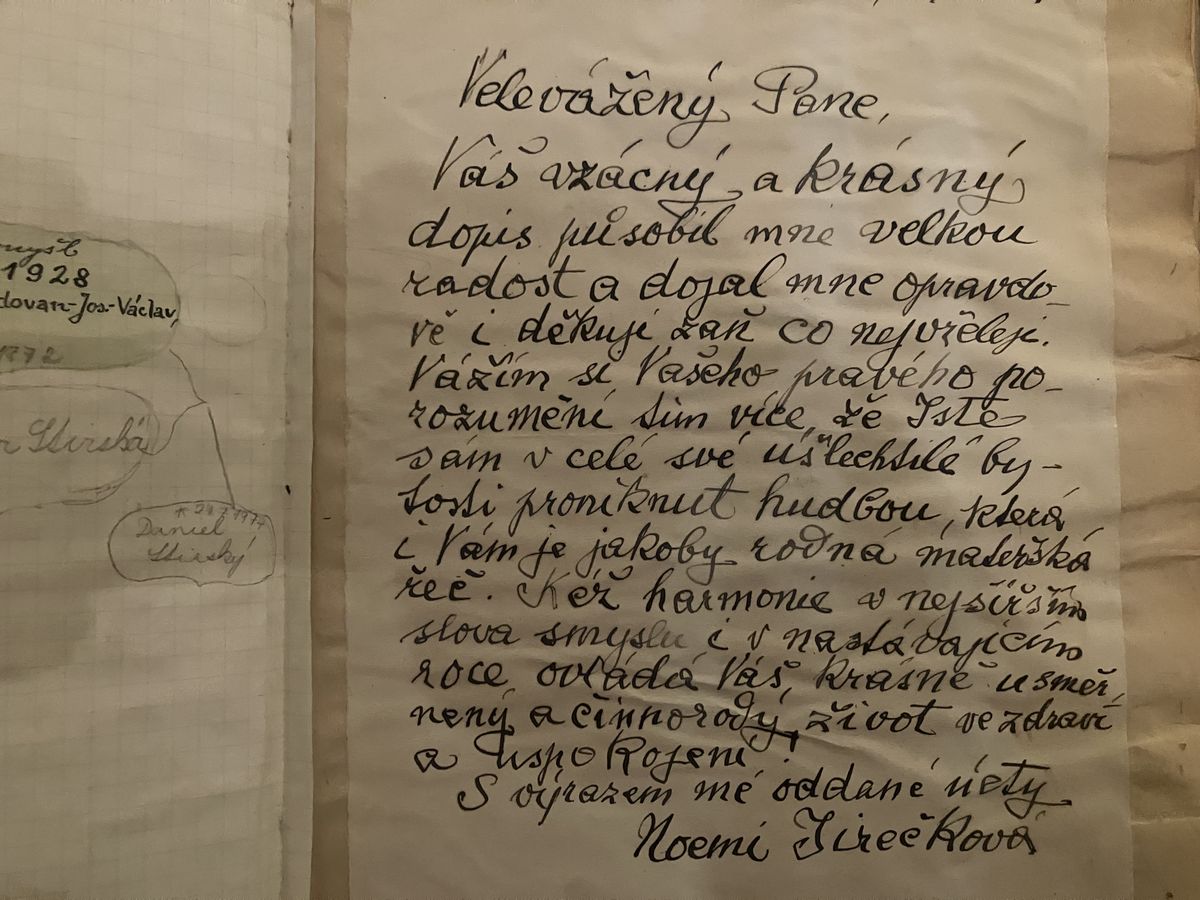 myšl
1928
dovan-Jos-Václav,
1972
Stirská
* 20.7.1977
Daniel
Stirský
Velevážený Pane,
Váš vzácný a krásný
dopis působil mne velkou
radost a dojal mne opravdo-
vě i děkuji zaň co nejvřeleji.
Vážím si Vašeho pravého po-
rozumění tím více, že Jste
sám v celé své ušlechtilé by-
tosti proniknut hudbou, která
i Vám je jakoby rodná mateřská
řeč. Kéž harmonie v nejširším
slova smyslu i v nastávajícím
roce ovládá Váš, krásně usměr,
něný a činnorodý, život ve zdraví
a uspokojení!
S výrazem mé oddané úcty
Noemi Jirečková